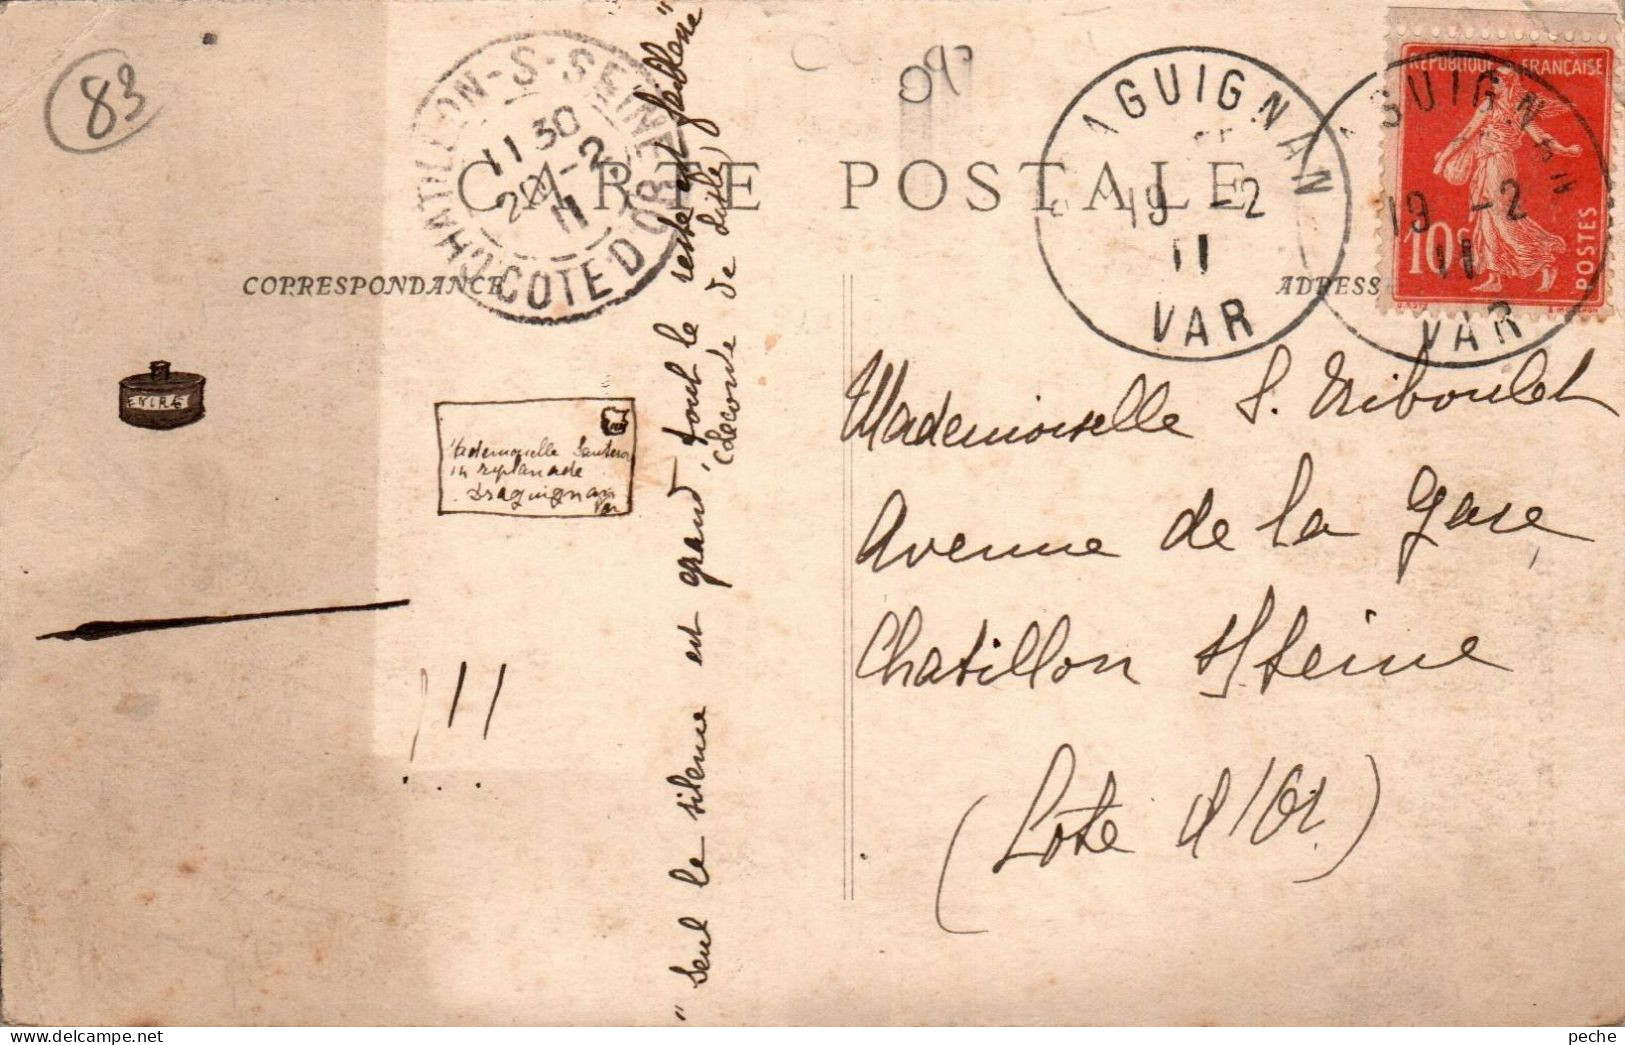 83
CHATILLON-S-SEINE
11 30
20 -2
11
COTE D'OR
090
DRAGUIGNAN
19 -2
11
VAR
AGUIGNAN
19 -2
11
VAR
REPUBLIQUE FRANÇAISE
10c
POSTES
CARTE POSTALE
CORRESPONDANCE
ADRESSE
ENCRE
Mademoiselle
esplanade
Draguignan
Var
!!!
"Seul le silence est grand, tout le reste est faiblesse"
(Leconte de Lisle)
Mademoiselle S. Triboulet
Avenue de la Gare
Chatillon s/ Seine
(Côte d'Or)
peche